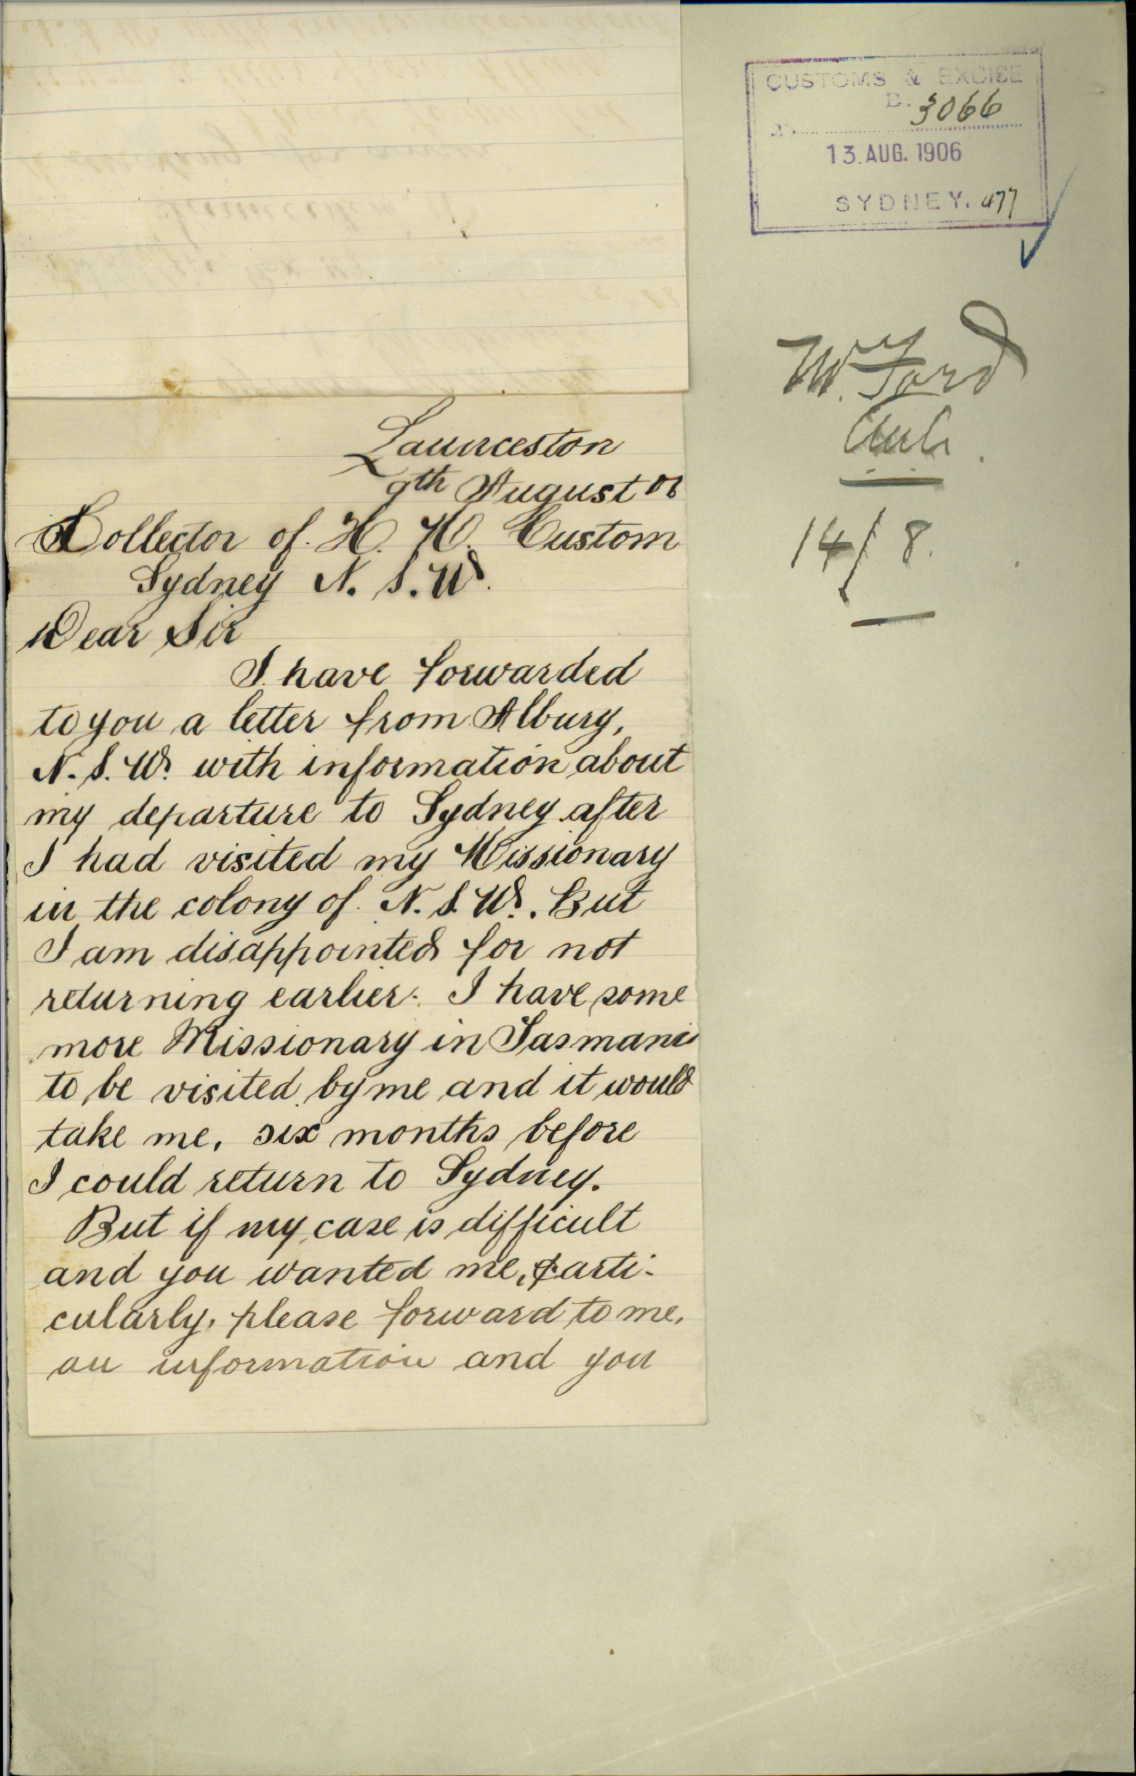 CUSTOMS & EXCISE
D. 3066
13. AUG. 1906
SYDNEY. 477
Mr Ford
14/8.
Launceston
9th August 06
Collector of H. M. Custom
Sydney N. S. W.
Dear Sir
I have forwarded
to you a letter from Albury,
N. S. W. with information about
my departure to Sydney after
I had visited my Missionary
in the colony of N. S. W. But
I am disappointed for not
returning earlier. I have some
more Missionary in Tasmania
to be visited by me and it would
take me, six months before
I could return to Sydney.
But if my case is difficult
and you wanted me, parti-
cularly, please forward to me,
an information and you